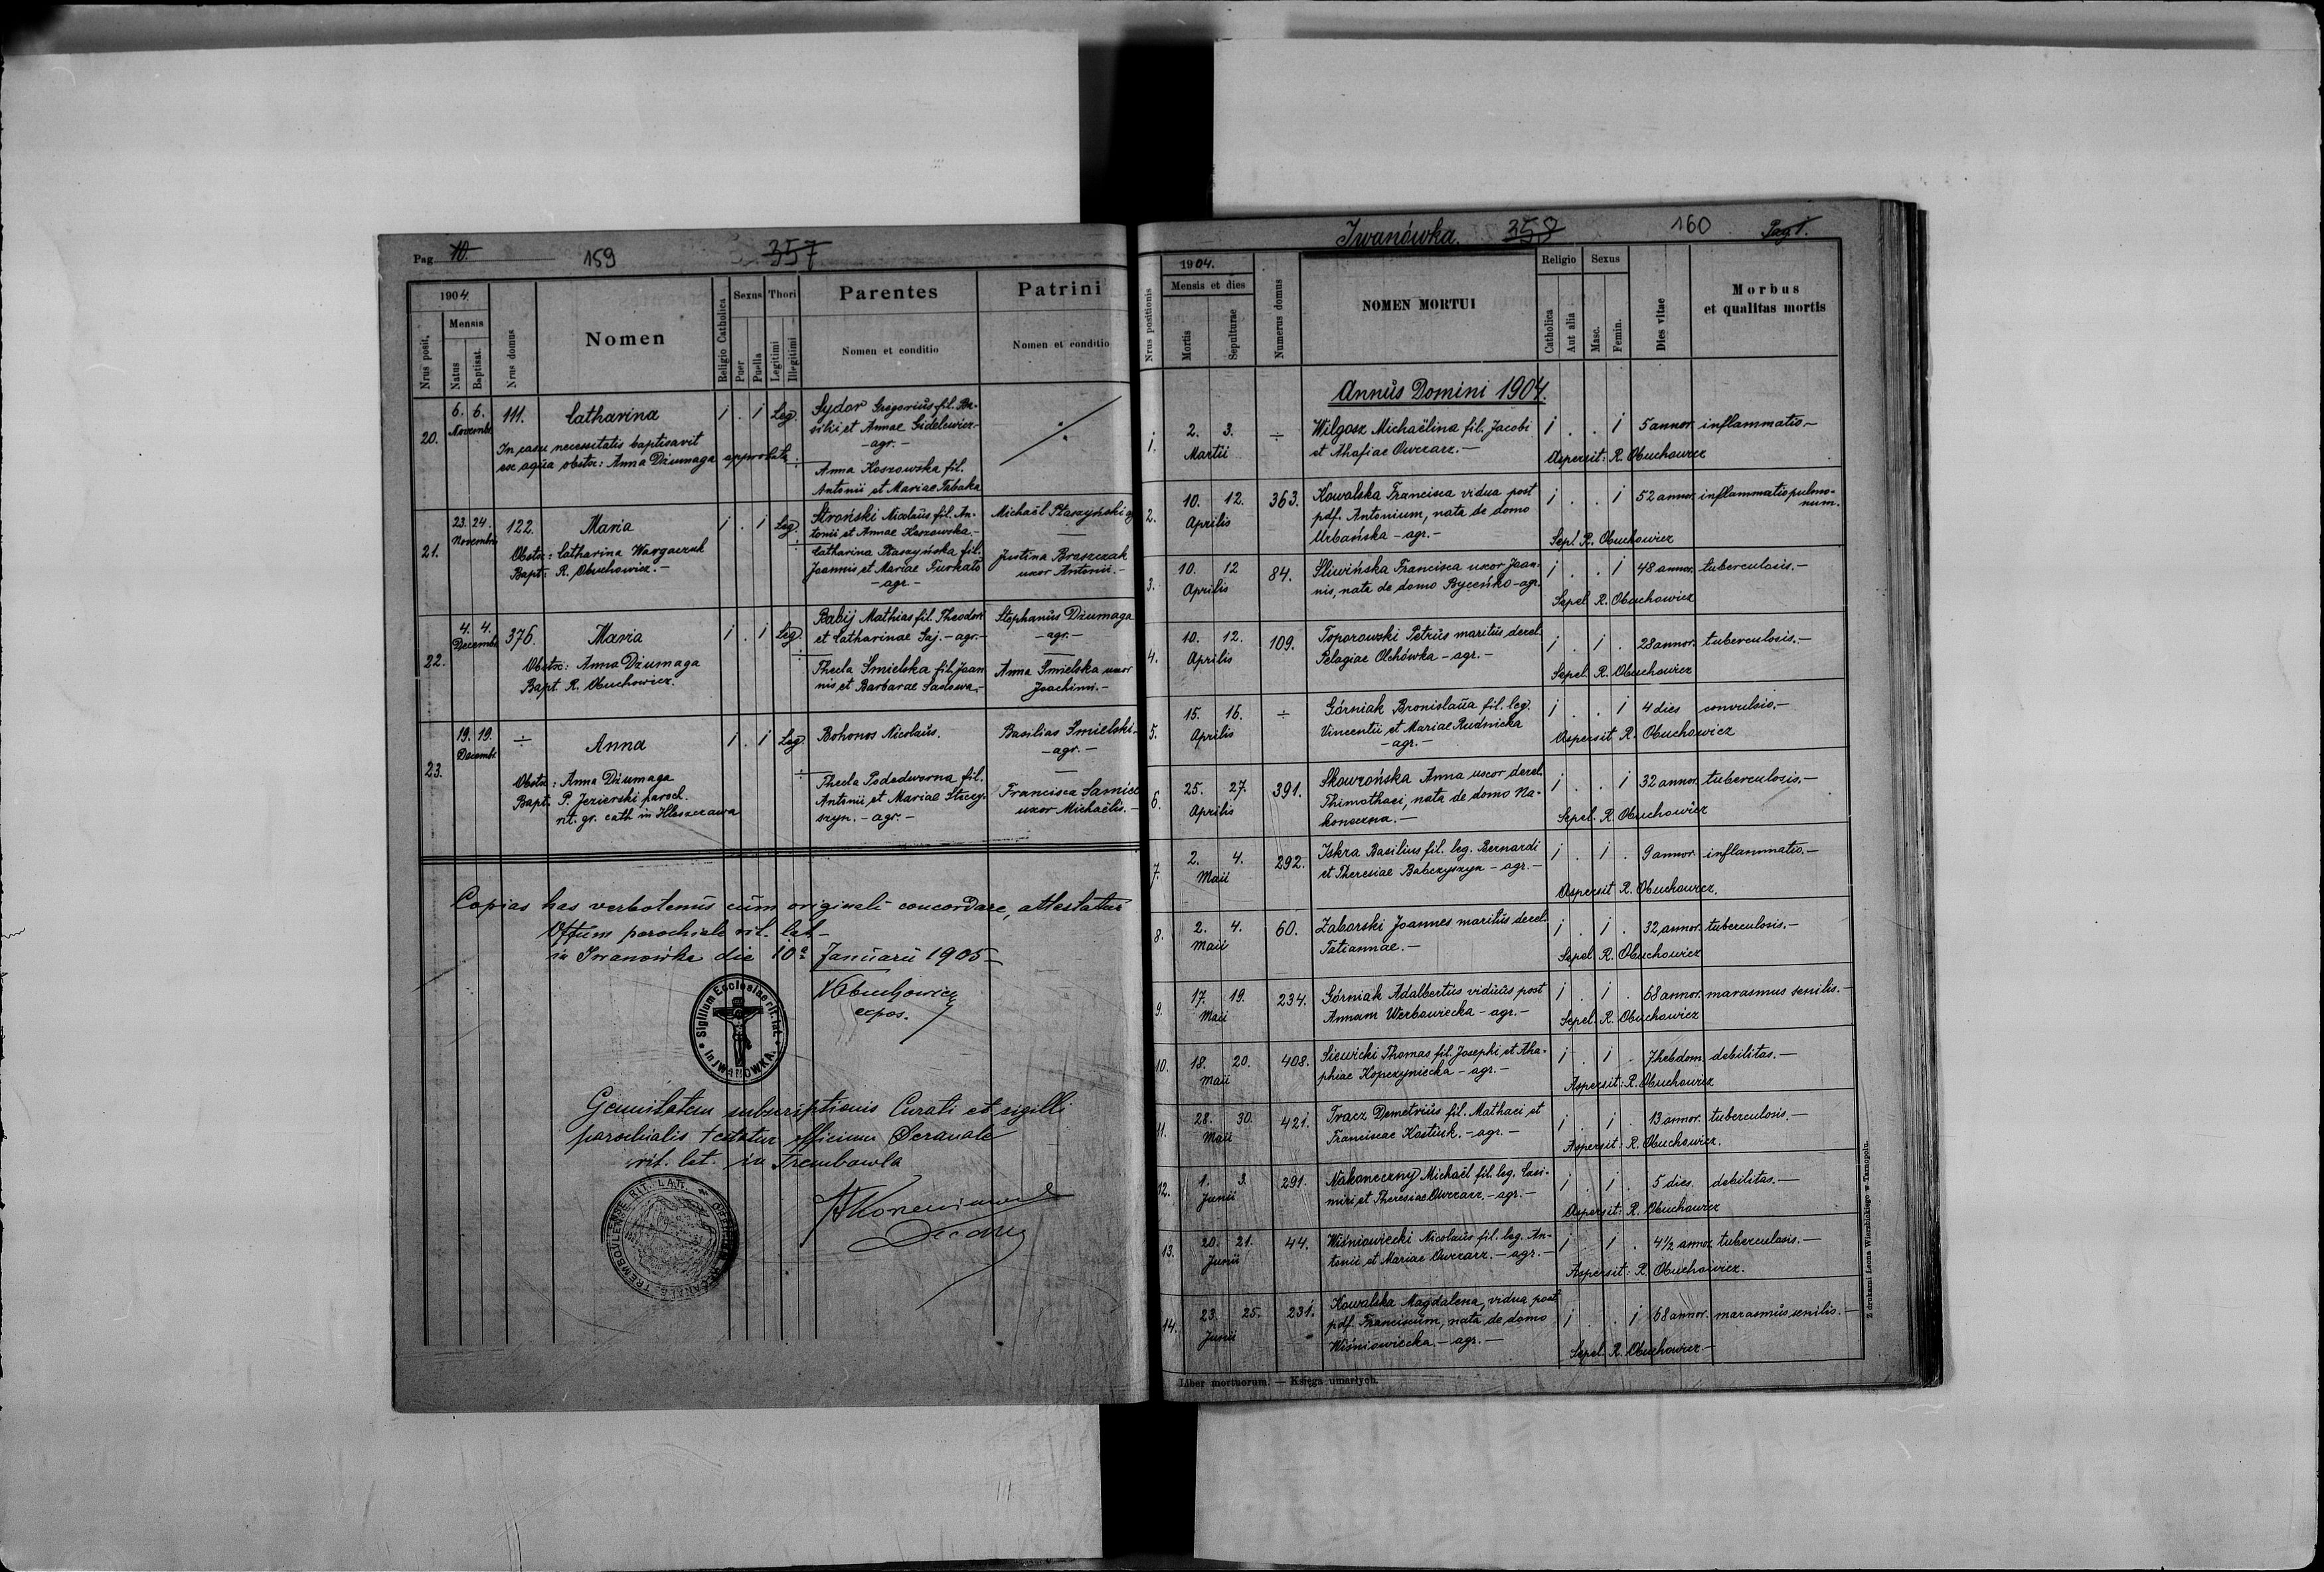 Pag 10.
159
357
1904.
Nrus posit.
Mensis
Natus
Baptisat.
Nrus domus
Nomen
Religio Catholica
Sexus
Puer
Puella
Thori
Legitimi
Illegitimi
Parentes
Nomen et conditio
Patrini
Nomen et conditio
20.
6. 6.
Novembr.
111.
Catharina
In casu necessitatis baptisavit
ex aqua obstx: Anna Dziumaga approbata
i . i Leg.
Sydor Gregorius fil. Ba-
silii et Annae Gidelewicz
- agr. -
Anna Koszowska fil.
Antonii et Mariae Tabaka
21.
23. 24.
Novembris
122.
Maria
Obstx: Catharina Wargaczuk
Bapt: R. Obuchowicz. -
i . i Leg.
Stroński Nicolaus fil. An-
tonii et Annae Koszowska. -
Catharina Ptaszyńska fil.
Joannis et Mariae Turkało
- agr -
Michaël Ptaszyński
Justina Braszczak
uxor Antonii. -
22.
4. 4.
Decembr.
376.
Maria
Obstx: Anna Dziumaga
Bapt R. Obuchowicz.
i . i Leg.
Babij Mathias fil. Theodori
et Catharinae Saj. - agr. -
Thecla Śmielska fil. Joan
nis et Barbarae Sadowa. -
Stephanus Dziumaga
- agr. -
Anna Śmielska uxor
Joachimi. -
23.
19. 19.
Decembr.
÷
Anna
Obstx: Anna Dziumaga
Bapt. P. Jezierski paroch.
rit. gr. cath in Hleszczawa
i . i Leg.
Bohonos Nicolaus.
Thecla Pododworna fil.
Antonii et Mariae Strzy-
szyn. - agr. -
Basilius Smielski. -
- agr. -
Francisca Sarnicka
uxor Michaëlis. -
Copias has verbotenus cum originali concordare, attestatur
Offium parochiale rit. lat. -
in Iwanówka die 10a Januarii 1905 -
Obuchowicz
expos.
Sigillum Ecclesiae rit. lat. in IWANÓWKA.
Genuitatem subscriptionis Curati et sigilli
parochialis testatur officium Decanale
rit. lat. in Trembowla
Decanus
OFFICIUM DECANALE TREMBOVLENSE RIT. LAT.
Iwanówka.
358
160
Pag 1.
Nrus positionis
1904.
Mensis et dies
Mortis
Sepulturae
Numerus domus
NOMEN MORTUI
Religio
Catholica
Aut alia
Sexus
Masc.
Femin.
Dies vitae
Morbus
et qualitas mortis
Annus Domini 1904.
1.
2. 3.
Martii
÷
Wilgosz Michaëlina fil. Jacobi
et Ahafiae Owczarz. -
i . . i 5 annor. inflammatio -
Aspersit: R. Obuchowicz
2.
10. 12.
Aprilis
363.
Kowalska Francisca vidua post
pdf. Antonium, nata de domo
Urbańska - agr. -
i . . i 52 annor. inflammatio pulmo-
num.
Sepl R. Obuchowicz
3.
10. 12
Aprilis
84.
Sliwińska Francisca uxor Joan-
nis, nata de domo Byceńko - agr.
i . . i 48 annor. tuberculosis. -
Sepel R. Obuchowicz
4.
10. 12.
Aprilis
109.
Toporowski Petrus maritus derel.
Pelagiae Olchówka - agr. -
i . i . 28 annor. tuberculosis. -
Sepel. R. Obuchowicz
5.
15. 16.
Aprilis
÷
Górniak Bronislaua fil. leg.
Vincentii et Mariae Rudnicka
- agr. -
i . . i 4 dies convulsio. -
Aspersit R. Obuchowicz
6.
25. 27.
Aprilis
391.
Skowrońska Anna uxor derel.
Thimothaei, nata de domo Na-
koneczna. -
i . . i 32 annor. tuberculosis. -
Sepel. R. Obuchowicz
7.
2. 4.
Maii
292.
Iskra Basilius fil. leg. Bernardi
et Theresiae Babczyszyn - agr. -
i . i . 9 annor. inflammatio. -
Aspersit R. Obuchowicz.
8.
2. 4.
Maii
60.
Zaborski Joannes maritus derel.
Tatiannae. -
i . i . 32 annor. tuberculosis. -
Sepel R. Obuchowicz
9.
17. 19.
Maii
234.
Górniak Adalbertus viduus post
Annam Werbowiecka - agr. -
i . i . 68 annor. marasmus senilis. -
Sepel. R. Obuchowicz
10.
18. 20.
Maii
408.
Siewicki Thomas fil. Josephi et Aha-
phiae Kopczyniecka - agr. -
i . i . 7 hebdom. debilitas. -
Aspersit: R. Obuchowicz
11.
28. 30.
Maii
421.
Tracz Demetrius fil. Mathaei et
Franciscae Kostiuk. - agr. -
i . i . 13 annor. tuberculosis. -
Aspersit: R. Obuchowicz.
12.
1. 3.
Junii
291.
Nakoneczny Michaël fil. leg. Casi-
miri et Theresiae Owczarz. - agr. -
i . i . 5 dies. debilitas. -
Aspersit: R. Obuchowicz
13.
20. 21.
Junii
44.
Wiśniowiecki Nicolaus fil. leg. An-
tonii et Mariae Owczarz. - agr. -
i . i . 4 1/2 annor. tuberculosis. -
Aspersit: R. Obuchowicz.
14.
23. 25.
Junii
231.
Kowalska Magdalena, vidua post
pdf. Franciscum, nata de domo
Wiśniowiecka. - agr. -
i . . i 68 annor. marasmus senilis. -
Sepel R. Obuchowicz -
Liber mortuorum. — Księga umarłych.
Z drukarni Leona Wierzbickiego w Tarnopolu.